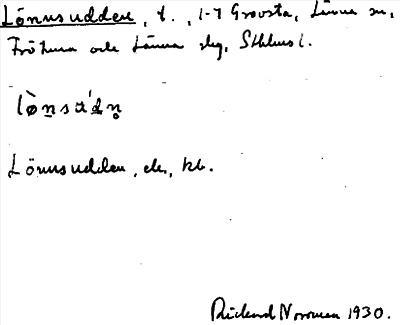 Lönnsudden, t., 1-7 Grovsta, Länna sn,
Frötuna och Länna slg, Sthlms l.
lø̀nsúdn̥
Lönnsudden, ek, kb.
Rickard Norman 1930.